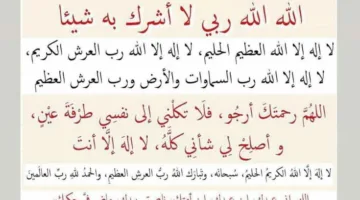 الله الله ربي لا أشرك به شيئا
لا إله إلا الله العظيم الحليم، لا إله إلا الله رب العرش الكريم،
لا إله إلا الله رب السماوات والأرض ورب العرش العظيم
اللهُمَّ رحمتَكَ أرجُو، فلَا تكلْني إلى نفسِي طرْفَةَ عيْنٍ،
و أصلحْ لِي شأنِي كلَّهُ، لا إلهَ إلَّا أنتَ
لا إلهَ إلَّا اللهُ الكريمُ الحليمُ، سُبحانَه، وتبَارَكَ اللهُ ربُّ العرشِ العظيمِ، والحمدُ للهِ ربِّ العالَمينَ